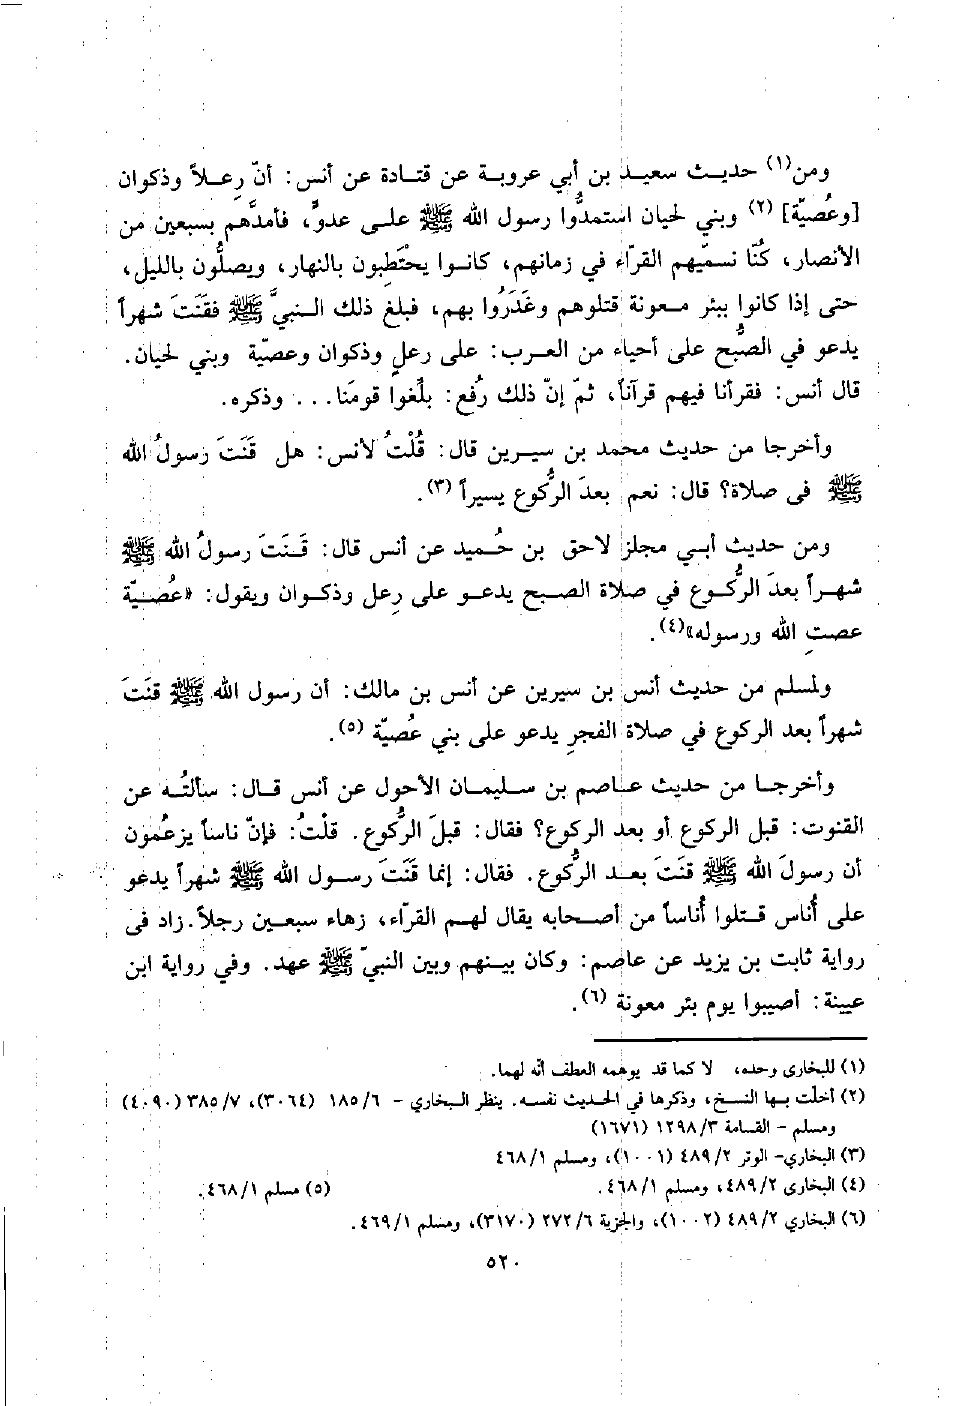 ومن(١) حديث سعيد بن أبي عروبة عن قتادة عن أنس: أنّ رِعلاً وذكوان
[وعُصيّة] (٢) وبني لحيان استمدُّوا رسول الله ﷺ على عدوٍّ، فأمدَّهم بسبعين من
الأنصار، كُنّا نسمّيهم القرّاء في زمانهم، كانوا يحْتَطِبون بالنهار، ويصلُّون بالليل،
حتى إذا كانوا ببئر معونة قتلوهم وغَدَرُوا بهم، فبلغ ذلك النبيَّ ﷺ فقَنَتَ شهراً
يدعو في الصُّبح على أحياء من العرب: على رعلٍ وذكوان وعصيّة وبني لحيان.
قال أنس: فقرأنا فيهم قرآناً، ثمّ إنّ ذلك رُفع: بلِّغوا قومَنا... وذكره.
وأخرجا من حديث محمد بن سيرين قال: قُلْتُ لأنس: هل قَنَتَ رسولُ الله
ﷺ فى صلاة؟ قال: نعم بعدَ الرُّكوع يسيراً (٣).
ومن حديث أبي مجلز لاحق بن حُميد عن أنس قال: قَنَتَ رسولُ الله ﷺ
شهراً بعدَ الرُّكوع في صلاة الصبح يدعو على رِعل وذكوان ويقول: «عُصيّة
عصتِ الله ورسوله»(٤).
ولمسلم من حديث أنس بن سيرين عن أنس بن مالك: أن رسول الله ﷺ قنَتَ
شهراً بعد الركوع في صلاة الفجرِ يدعو على بني عُصيّة (٥).
وأخرجا من حديث عاصم بن سليمان الأحول عن أنس قال: سألتُه عن
القنوت: قبل الركوع أو بعد الركوع؟ فقال: قبلَ الرُّكوع. قلْتُ: فإنّ ناساً يزعُمون
أن رسولَ الله ﷺ قنَتَ بعد الرُّكوع. فقال: إنما قَنَتَ رسول الله ﷺ شهراً يدعو
على أُناس قتلوا أُناساً من أصحابه يقال لهم القرّاء، زهاء سبعين رجلاً. زاد فى
رواية ثابت بن يزيد عن عاصم: وكان بينهم وبين النبيّ ﷺ عهد. وفي رواية ابن
عيينة: أصيبوا يوم بئر معونة (٦).
(١) للبخارى وحده، لا كما قد يوهمه العطف أنه لهما.
(٢) أخلّت بها النسخ، وذكرها في الحديث نفسه. ينظر البخاري - ٦/ ١٨٥ (٣٠٦٤)، ٧/ ٣٨٥ (٤٠٩٠)
ومسلم - القسامة ٣/ ١٢٩٨ (١٦٧١)
(٣) البخاري- الوتر ٢/ ٤٨٩ (١٠٠١)، ومسلم ١/ ٤٦٨
(٤) البخارى ٢/ ٤٨٩، ومسلم ١/ ٤٦٨. (٥) مسلم ١/ ٤٦٨.
(٦) البخاري ٢/ ٤٨٩ (١٠٠٢)، والجزية ٦/ ٢٧٢ (٣١٧٠)، ومسلم ١/ ٤٦٩.
٥٢٠